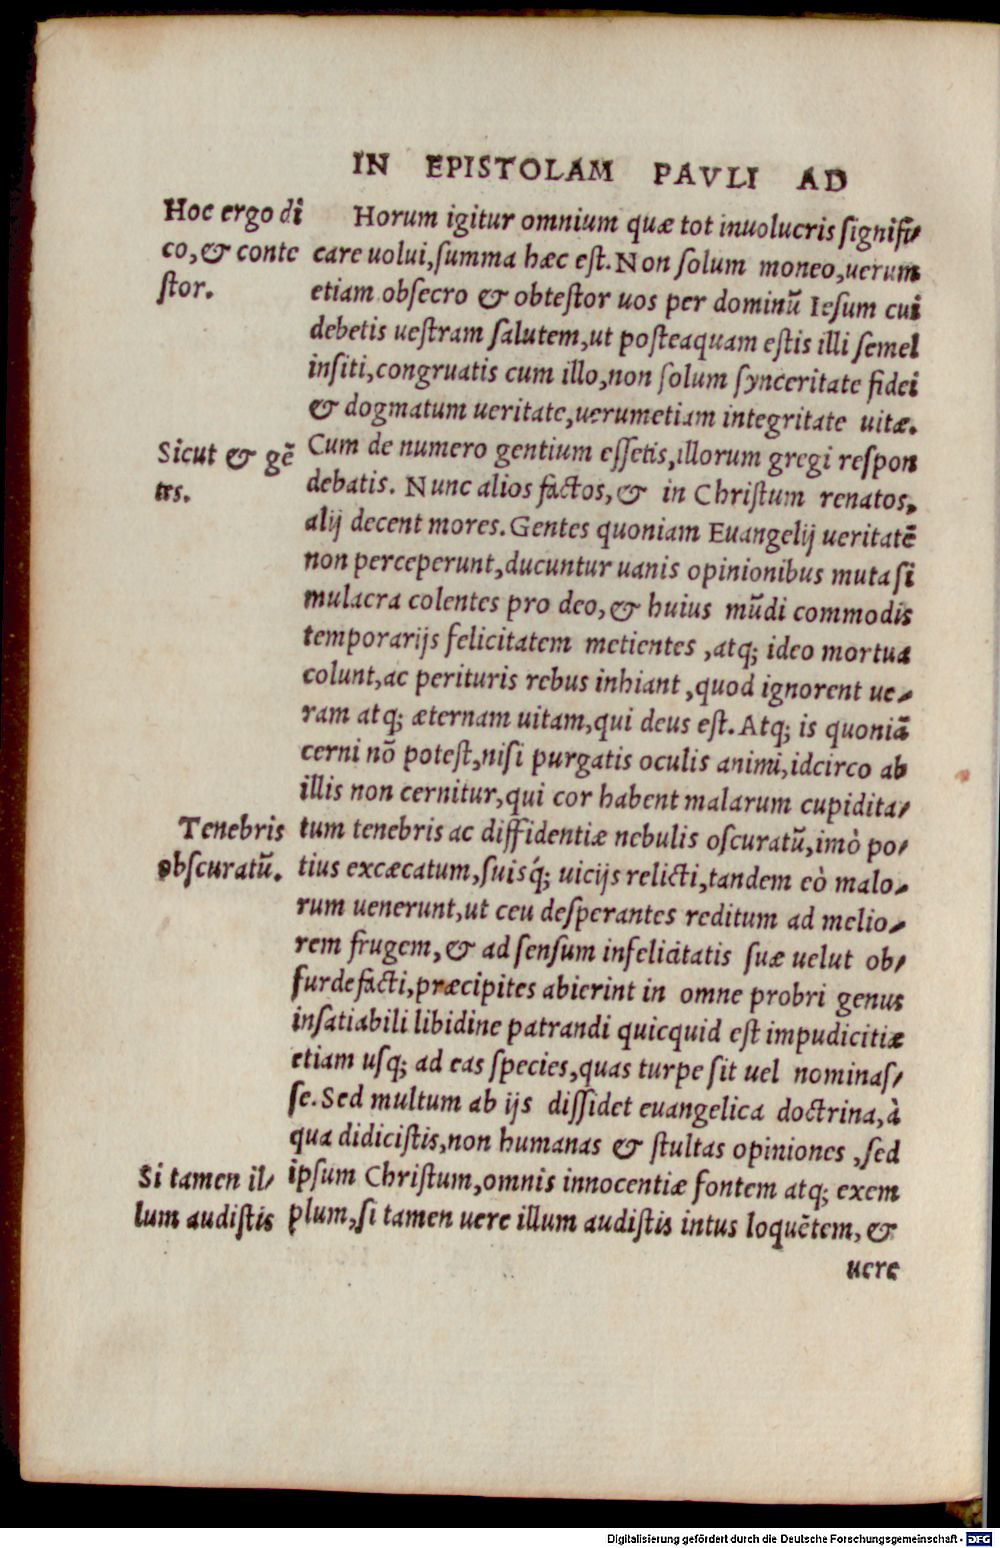 IN EPISTOLAM PAVLI AD
Hoc ergo di
co, & conte
ſtor.
Horum igitur omnium quæ tot inuolucris ſignifi⸗
care uolui, ſumma hæc eſt. Non ſolum moneo, uerum
etiam obſecro & obteſtor uos per dominũ Ieſum cui
debetis ueſtram ſalutem, ut poſteaquam eſtis illi ſemel
inſiti, congruatis cum illo, non ſolum ſynceritate fidei
& dogmatum ueritate, uerumetiam integritate uitæ.
Sicut & gẽ
tes.
Cum de numero gentium eſſetis, illorum gregi reſpon
debatis. Nunc alios factos, & in Chriſtum renatos,
alij decent mores. Gentes quoniam Euangelij ueritatẽ
non perceperunt, ducuntur uanis opinionibus muta ſi
mulacra colentes pro deo, & huius mũdi commodis
temporarijs felicitatem metientes, atq; ideo mortua
colunt, ac perituris rebus inhiant, quod ignorent ue⸗
ram atq; æternam uitam, qui deus eſt. Atq; is quoniã
cerni nõ poteſt, niſi purgatis oculis animi, idcirco ab
illis non cernitur, qui cor habent malarum cupidita⸗
Tenebris
obſcuratũ.
tum tenebris ac diffidentiæ nebulis oſcuratũ, imò po⸗
tius excæcatum, ſuisq́; uicijs relicti, tandem eò malo⸗
rum uenerunt, ut ceu deſperantes reditum ad melio⸗
rem frugem, & ad ſenſum infelicitatis ſuæ uelut ob⸗
ſurdefacti, præcipites abierint in omne probri genus
inſatiabili libidine patrandi quicquid eſt impudicitiæ
etiam uſq; ad eas ſpecies, quas turpe ſit uel nominaſ⸗
ſe. Sed multum ab ijs diſſidet euangelica doctrina, à
qua didiciſtis, non humanas & ſtultas opiniones, ſed
Si tamen il⸗
lum audiſtis
ipſum Chriſtum, omnis innocentiæ fontem atq; exem
plum, ſi tamen uere illum audiſtis intus loquẽtem, &
uere
Digitalisierung gefördert durch die Deutsche Forschungsgemeinschaft - DFG